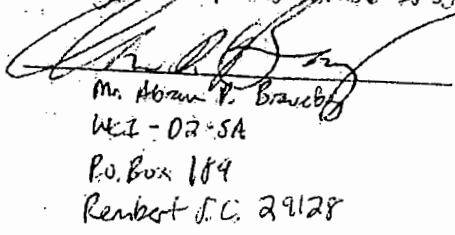 Mr. Abram P.
WCI - D2-5A
P.O. Box 189
Rembert S.C. 29128